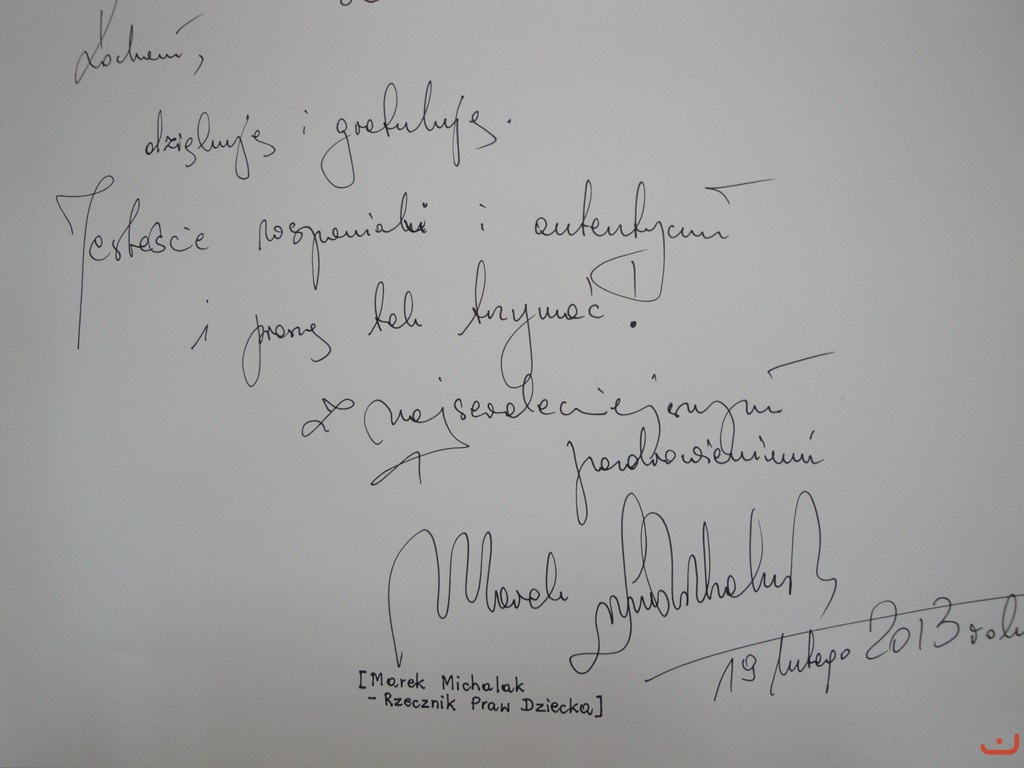 Kochani,
dziękuję i gratuluję.
Jesteście wspaniali i autentyczni
i proszę tak trzymać!
Z najserdeczniejszymi
pozdrowieniami
Marek Michalak
19 lutego 2013 roku
[Marek Michalak
- Rzecznik Praw Dziecka]